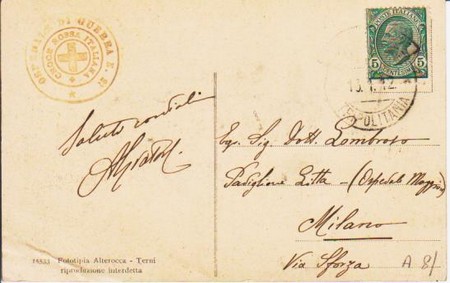 OSPEDALE DI GUERRA N.
CROCE ROSSA ITALIANA
POSTE ITALIANE
5 5
CENTESIMI
TRIPOLITANIA
Saluti cordiali
Egr. Sig. Dott. Lombroso
Padiglione Litta - (Ospedale Maggiore)
Milano
Via Sforza
A 8/
Fototipia Alterocca - Terni
riproduzione interdetta